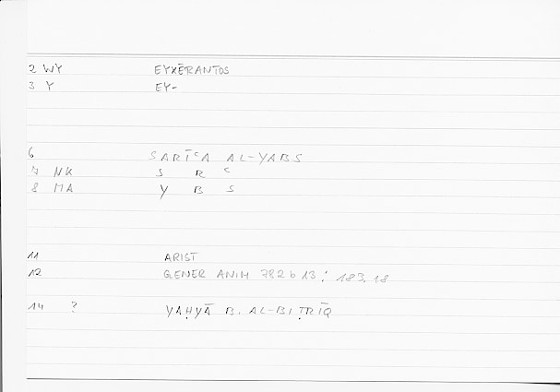 2 WY EYXĒRANTOS
3 Y EY-
6 SARĪʿA AL-YABS
7 NK S R ʿ
8 MA Y B S
11 ARIST
12 GENER ANIM 782 b 13 ; 183,18
14 ? YAḤYĀ B. AL-BIṬRĪQ